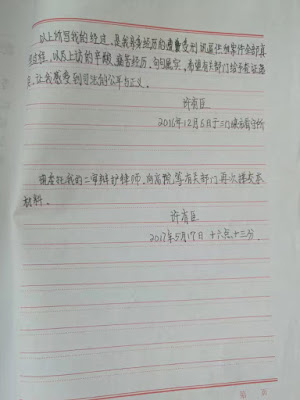 以上所写我的经过，是我身务经历的遭量受刑讯逼供枉案件全部真
实过程，以及上访的辛酸、痛苦经历，句句属实，希望有关部门给予查证落
实，让我感受到司法的公平与正义。
许有臣
2016年12月5日于三门峡市看守所
现委托我的二审辩护律师，向高院等有关部门再次提交本
材料。
许有臣
2017年5月17日 十六点十三分.
第 页